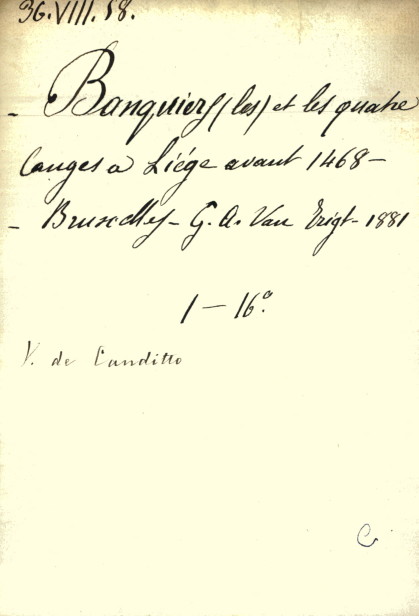 36.VIII.58.
- Banquiers (les) et les quatre
Canges a Liége avant 1468-
- Bruxelles- G. A. Van Trigt- 1881
1-16.º
V. de Canditto
C